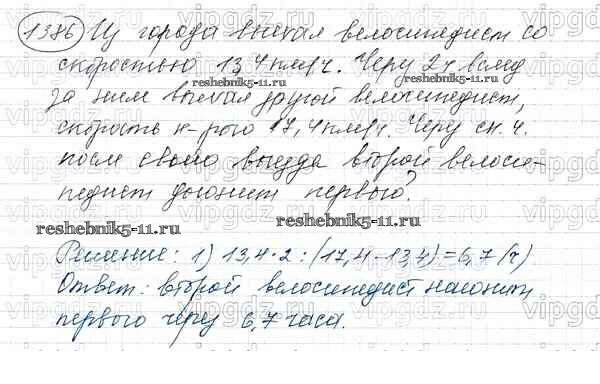 1386 Из города выехал велосипедист со
скоростью 13,4 км/ч. Через 2 ч вслед
reshebnik5-11.ru
за ним выехал другой велосипедист,
скорость к-рого 17,4 км/ч. Через ск. ч.
после своего выезда второй велоси-
педист догонит первого?
reshebnik5-11.ru
reshebnik5-11.ru
Решение: 1) 13,4·2:(17,4-13,4)=6,7 (ч)
Ответ: второй велосипедист нагонит
первого через 6,7 часа.